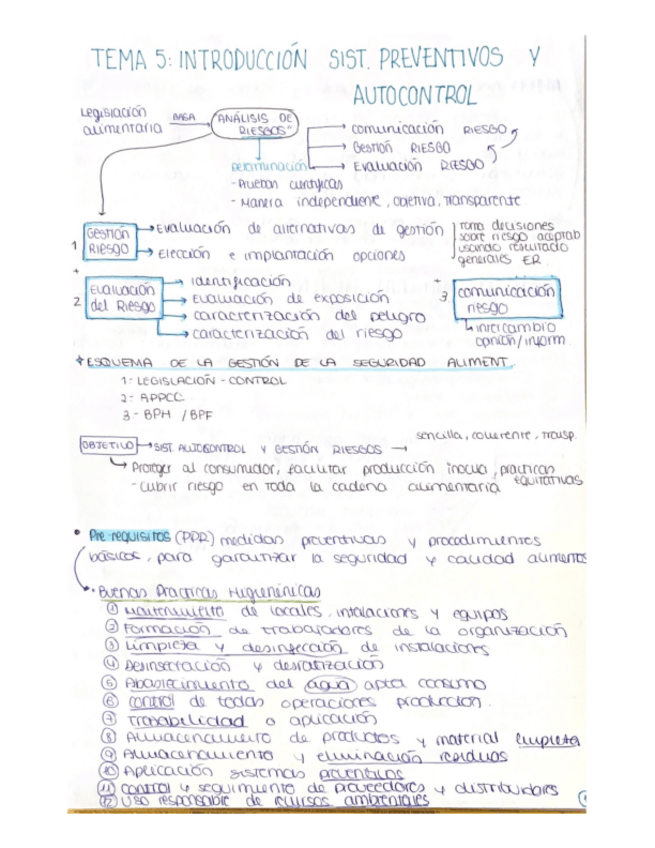 TEMA 5: INTRODUCCIÓN SIST. PREVENTIVOS Y
AUTOCONTROL
Legislación alimentaria BASA ANÁLISIS DE RIESGOS"
comunicación RIESGO
Gestión RIESGO
Evaluación RIESGO
Determinación
- Pruebas científicas
- Manera independiente, objetiva, transparente
1 Gestión Riesgo
Evaluación de alternativas de gestión
Elección e implantación opciones
Toma decisiones
sobre riesgo aceptab
usando resultado
generales ER
+
2 Evaluación del Riesgo
identificación
evaluación de exposición
caracterización del peligro
caracterización del riesgo
3 comunicación riesgo
intercambio
opinión/inform
* ESQUEMA DE LA GESTIÓN DE LA SEGURIDAD ALIMENT.
1- LEGISLACIÓN - CONTROL
2- APPCC
3- BPH / BPF
OBJETIVO SIST. AUTOCONTROL Y GESTIÓN RIESGOS → sencilla, coherente, transp.
Proteger al consumidor, facilitar producción inocua, prácticas equitativas
- Cubrir riesgo en toda la cadena alimentaria
• Pre-requisitos (PPR) medidas preventivas y procedimientos
básicos, para garantizar la seguridad y calidad alimentos
• Buenas Prácticas Higienénicas
① Mantenimiento de locales, intalaciones y equipos
② Formación de trabajadores de la organización
③ Limpieza y desinfección de instalaciones
④ Desinsectación y desratización
⑤ Abastecimiento del agua apta consumo
⑥ control de todas operaciones producción.
⑦ Trazabilidad o aplicación
⑧ Almacenamiento de productos y material limpieza
⑨ Almacenamiento y eliminación residuos
⑩ Aplicación sistemas preventivos
⑪ control y seguimiento de proveedores y distribuidores
⑫ USO responsable de recursos ambientales